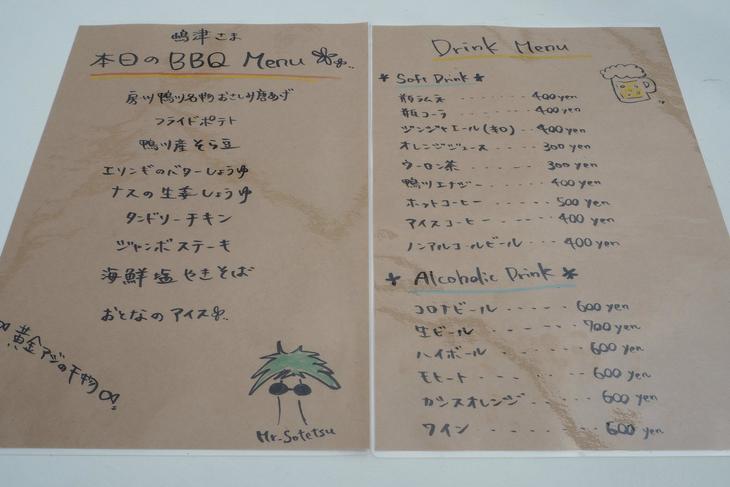 鴨津さま
本日の BBQ Menu
鴨川名物 おさしみ唐あげ
フライドポテト
鴨川産そら豆
エリンギのバターしょうゆ
ナスの生姜しょうゆ
タンドリーチキン
ジャンボステーキ
海鮮塩やきそば
おとなのアイス
黄金アジの干物
Mr. Sotetsu
Drink Menu
* Soft Drink *
瓶ラムネ ・・・・・・・ 400yen
瓶コーラ ・・・・・・・ 400yen
ジンジャエール(辛口) ・・400yen
オレンジジュース ・・・・ 300yen
ウーロン茶 ・・・・・・ 300yen
鴨川エナジー ・・・・・ 400yen
ホットコーヒー ・・・・ 500yen
アイスコーヒー ・・・・ 400yen
ノンアルコールビール ・・・ 400yen
* Alcoholic Drink *
コロナビール ・・・・・ 600yen
生ビール ・・・・・・ 700yen
ハイボール ・・・・・・ 600yen
モヒート ・・・・・・・ 600yen
カシスオレンジ ・・・・・ 600yen
ワイン ・・・・・・・ 600yen